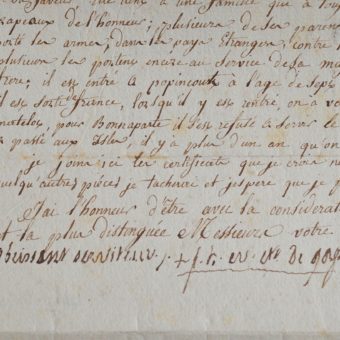 faveur une famille que a
rapeaux de l'honneur; plusieurs de ses paren
porté les armes, dans les pays Etrangers, contre l
plusieurs les portent encore au service de sa ma
frere; il est entré a popincourt a l'age de Sept
il est sorti france, lorsqu'il y est rentré, on a vo
matelot, pour Bonnaparte il s'est refusé a servir le
passé aux Isles, il y a plus d'un an qu'on
je joins ici les certificats que je crois ne
quelqu'autres piéces je tacherai et j'espere que je p
J'ai l'honneur d'être avec la considerat
et la plus distinguée Messieurs votre
obeissant serviteur